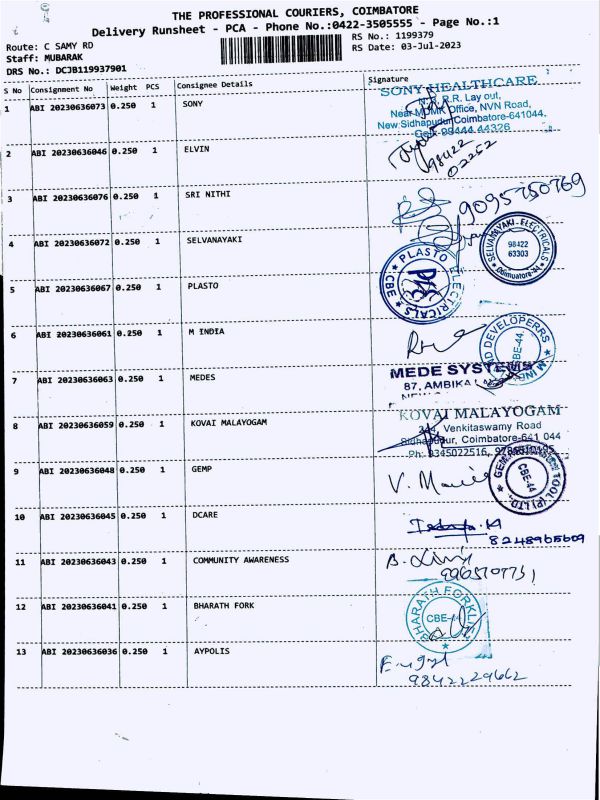 THE PROFESSIONAL COURIERS, COIMBATORE
Delivery Runsheet - PCA - Phone No.:0422-3505555 - Page No.:1
Route: C SAMY RD
RS No.: 1199379
Staff: MUBARAK
RS Date: 03-Jul-2023
DRS No.: DCJB119937901
S No Consignment No Weight PCS Consignee Details Signature
1 ABI 20230636073 0.250 1 SONY
SONY HEALTHCARE
R.R. Lay out,
Office, NVN Road,
New Sidhapudur, Coimbatore-641044.
98444 44326
2 ABI 20230636046 0.250 1 ELVIN
98422
02252
3 ABI 20230636076 0.250 1 SRI NITHI
9095750769
4 ABI 20230636072 0.250 1 SELVANAYAKI
SELVANAYAKI ELECTRICALS
98422
63303
5 ABI 20230636067 1 PLASTO
0.250
PLASTO ELECTRICALS
CBE
6 ABI 20230636061 0.250 1 M INDIA
DEVELOPERRS
CBE-44.
7 ABI 20230636063 0.250 1 MEDES
MEDE SYSTEMS
87, AMBIKA
8 ABI 20230636059 0.250 1 KOVAI MALAYOGAM
KOVAI MALAYOGAM
Venkitaswamy Road
Sidhapudur, Coimbatore-641 044
Ph: 9345022516,
9 ABI 20230636048 0.250 1 GEMP
TOOL (P) LTD.
CBE-44
10 ABI 20230636045 0.250 1 DCARE
8248965609
11 ABI 20230636043 0.250 1 COMMUNITY AWARENESS
12 ABI 20230636041 0.250 1 BHARATH FORK
BHARATH FORKLIFT
CBE-44
13 ABI 20230636036 0.250 1 AYPOLIS
9842229662